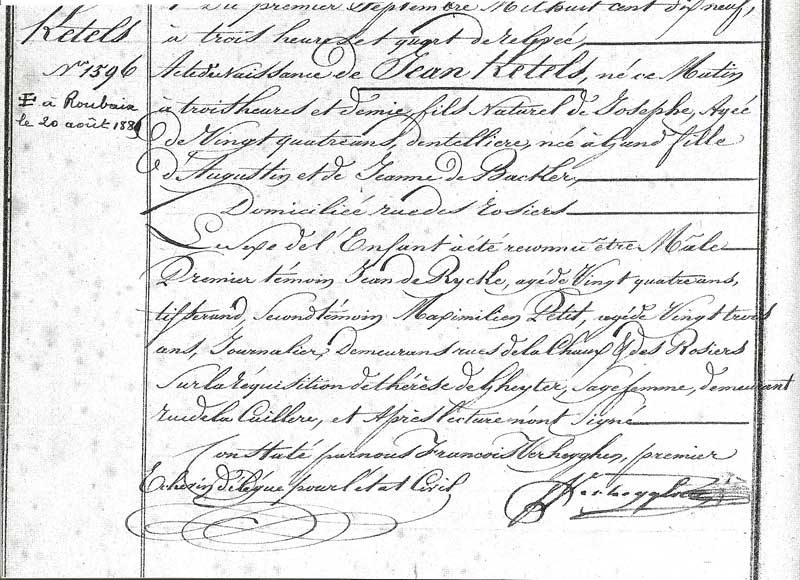 Ketels
N° 1596
à Roubaix
le 20 août 188
Du premier Septembre Mil huit cent dix neuf,
à trois heures et quart de relevée,
Acte de Naissance de Jean Ketels, né ce Matin
à trois heures et demie, fils Naturel de Josephe, Agée
de Vingt quatre ans, dentelliere, née à Gand fille
d'Augustin et de Jeanne de Backer,
Domiciliée rue des rosiers
Le sexe de l'Enfant à été reconnu être Mâle
Premier témoin Jean de Rycke, agé de Vingt quatre ans,
tisserand, Second témoin Maximilien Petit, agé de Vingt trois
ans, Journalier, Demeurans rues de la Chaux & des Rosiers
Sur la réquisition de thérèse de Gheyter, sage femme, demeurant
rue de la Cuillere, et Après lecture n'ont signé
Constaté par nous Francois Verheyghen, premier
Echevin délégué pour l'état Civil